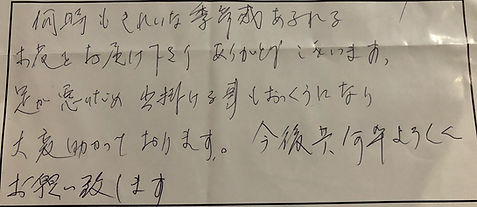 何時もきれいな季節感あふれる
お花をお届け下さりありがとうございます。
足が悪いため出掛ける事もおっくうになり
大変助かっております。今後共何卒よろしく
お願い致します